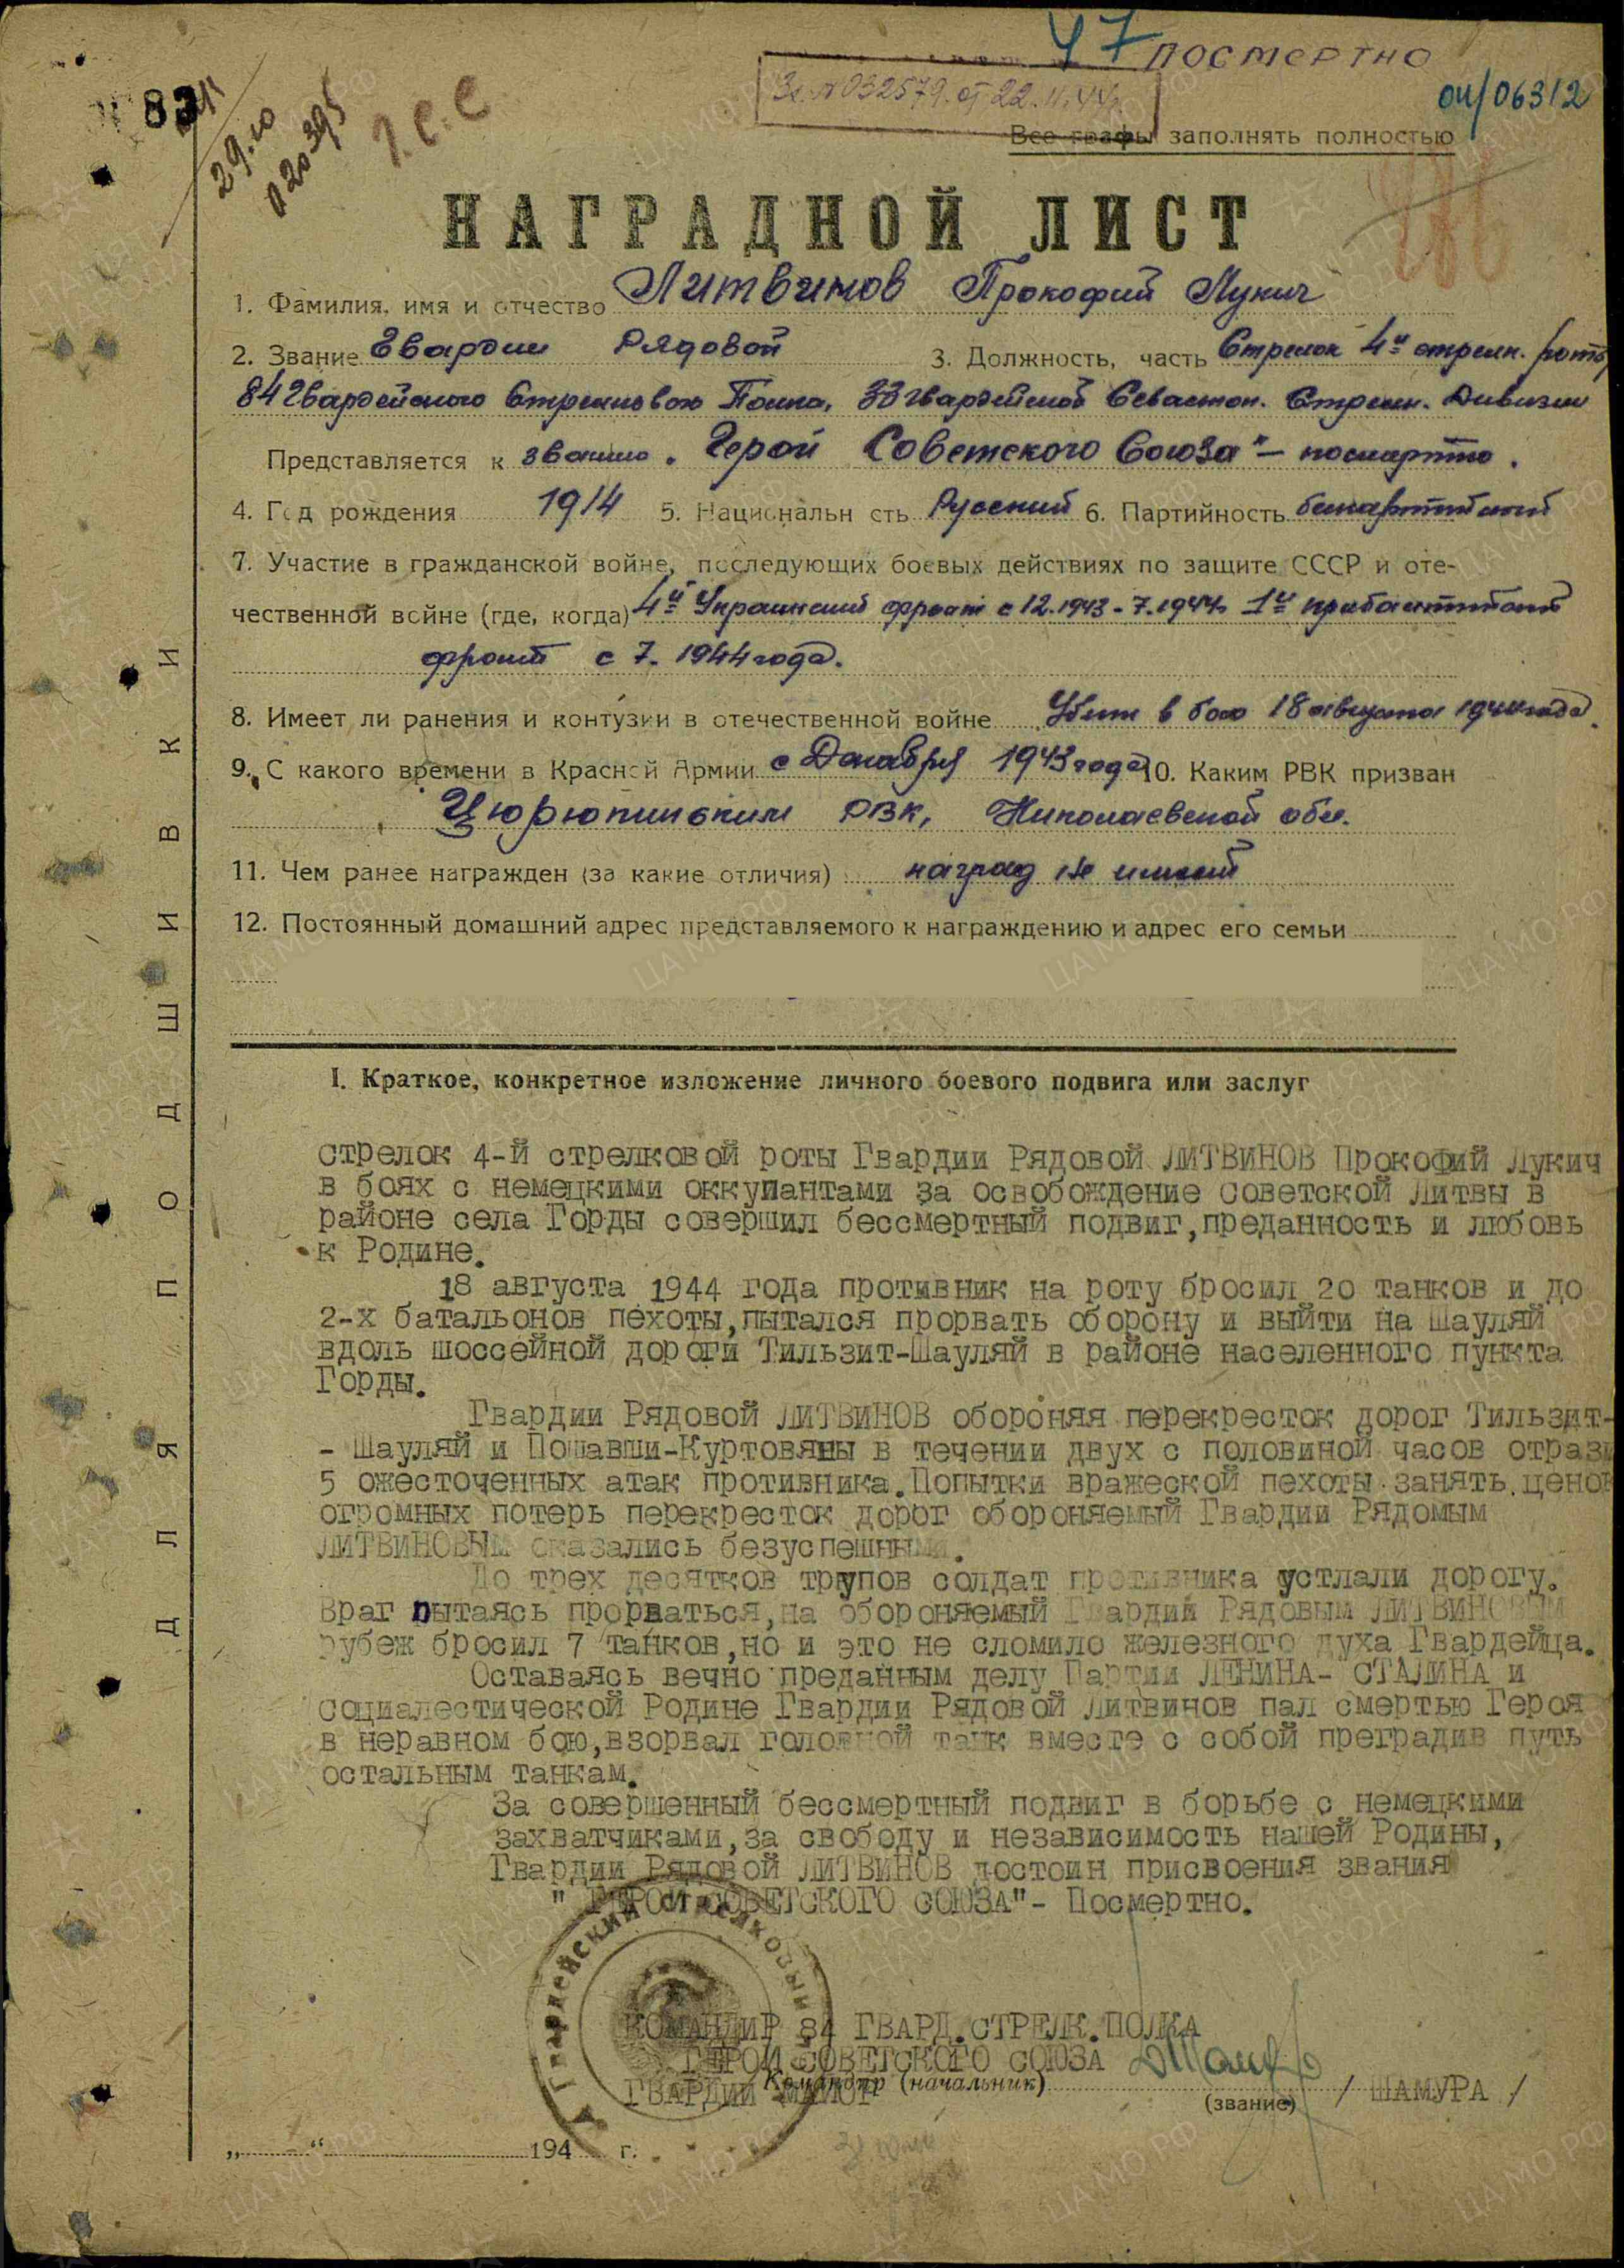 47 посмертно
Зг. №032579. от 22.11.44г.
оч/06312
83
29.10
020395
Г.С.С
Все графы заполнять полностью
НАГРАДНОЙ ЛИСТ
1. Фамилия, имя и отчество Литвинов Прокофий Лукич
2. Звание Гвардии Рядовой 3. Должность, часть Стрелок 4й стрелк. роты
84 Гвардейского Стрелкового Полка, 33 гвардейской Севастоп. Стрелк. Дивизии
Представляется к званию „Герой Советского Союза" – посмертно.
4. Год рождения 1914 5. Национальность Русский 6. Партийность беспартийный
7. Участие в гражданской войне, последующих боевых действиях по защите СССР и оте-
чественной войне (где, когда) 4й Украинский фронт с 12.1943-7.1944г 1й прибалтийский
фронт с 7. 1944 года.
8. Имеет ли ранения и контузии в отечественной войне Убит в бою 18 августа 1944 года.
9. С какого времени в Красной Армии с Декабря 1943 года 10. Каким РВК призван
Цюрюпинским РВК, Николаевской обл.
11. Чем ранее награжден (за какие отличия) наград не имеет
12. Постоянный домашний адрес представляемого к награждению и адрес его семьи
I. Краткое, конкретное изложение личного боевого подвига или заслуг
стрелок 4-й стрелковой роты Гвардии Рядовой ЛИТВИНОВ Прокофий Лукич
в боях с немецкими оккупантами за освобождение Советской Литвы в
районе села Горды совершил бессмертный подвиг,преданность и любовь
к Родине.
18 августа 1944 года противник на роту бросил 20 танков и до
2-х батальонов пехоты,пытался прорвать оборону и выйти на Шауляй
вдоль шоссейной дороги Тильзит-Шауляй в районе населенного пункта
Горды.
Гвардии Рядовой ЛИТВИНОВ обороняя перекресток дорог Тильзит-
- Шауляй и Пошавши-Куртовяны в течении двух с половиной часов отрази
5 ожесточенных атак противника.Попытки вражеской пехоты занять ценок
огромных потерь перекресток дорог обороняемый Гвардии Рядомым
ЛИТВИНОВЫМ оказались безуспешными.
До трех десятков трупов солдат противника устлали дорогу.
Враг пытаясь прорваться,на обороняемый Гвардии Рядовым ЛИТВИНОВЫМ
рубеж бросил 7 танков,но и это не сломило железного духа Гвардейца.
Оставаясь вечно преданным делу Партии ЛЕНИНА- СТАЛИНА и
социалестической Родине Гвардии Рядовой Литвинов пал смертью Героя
в неравном бою,взорвал головной танк вместе с собой преградив путь
остальным танкам.
За совершенный бессмертный подвиг в борьбе с немецкими
захватчиками,за свободу и независимость нашей Родины,
Гвардии Рядовой ЛИТВИНОВ достоин присвоения звания
" ГЕРОЙ СОВЕТСКОГО СОЮЗА"- Посмертно.
Гвардейский стрелковый
КОМАНДИР 84 ГВАРД.СТРЕЛК.ПОЛКА
ГЕРОЙ СОВЕТСКОГО СОЮЗА
Командир (начальник)
ГВАРДИИ МАЙОР / ШАМУРА /
(звание)
„ " 194 г.
ДЛЯ ПОДШИВКИ